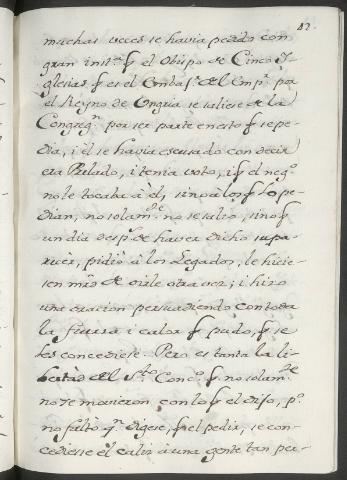 82.
muchas veces se havia pedido con
gran inst.ª q̃ el Obispo de Cinco Y-
glesias q̃ es el Emba.r del Emp.r por
el Reyno de Ungria se saliese de la
Congreg.n por ser parte en esto q̃ se pe-
dia, i él se havia escusado con decir
era Prelado, i tenia voto, i q̃ el neg.o
no le tocaba à él, sino à los q̃ lo pe-
dian, no solam.te no se salio, sino q̃
un dia desp.s de haver dicho su pa-
recer, pidiò à los Legados, le hicie-
sen mrd de oirle otra vez; i hizo
una oracion persuadiendo con toda
la fuerza i calor q̃ pudo, q̃ se
les concediese. Pero es tanta la li-
bertad del S.to Conc.o q̃ no solam.te
no se movieron con lo q̃ el dijo, p.o
no faltò q.n digese, q̃ el pedir, se con-
cediese el caliz à una gente tan per-